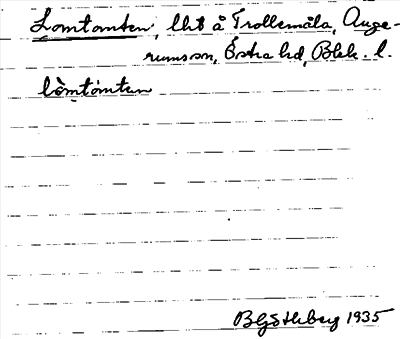 Lomtomten, lht å Trollemåla, Auge-
rums sn, Östra hd, Blek. l.
lòmtòmten
B Götlberg 1935